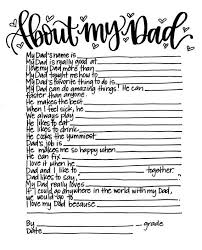 About my Dad
My Dad's name is
My Dad is really good at
I love my Dad more than
My Dad taught me how to
My Dad's favorite thing to do is
My Dad can do amazing things! He can
faster than anyone.
He makes the best
When I feel sick, he
We always play
He likes to eat
He likes to drink
He cooks the yummiest
Dad's job is
He makes me so happy when
He can fix
I love it when he
Dad and I like to together.
Dad likes to say,
My Dad really loves
If I could go anywhere in the world with my Dad,
we would go to
I love my Dad because
By grade
Date